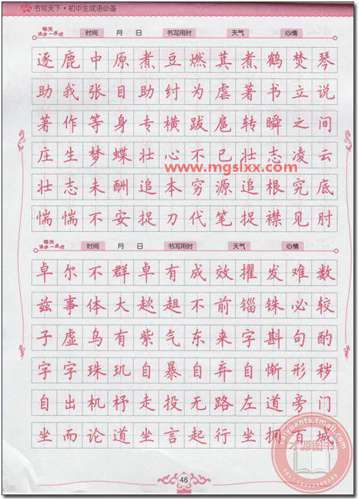 书写天下·初中生成语必备
每天进步一点点 时间 月 日 书写用时 天气 心情
逐鹿中原煮豆燃萁煮鹤焚琴
助我张目助纣为虐著书立说
著作等身专横跋扈转瞬之间
庄生梦蝶壮心不已壮志凌云
www.mgslxx.com
壮志未酬追本穷源追根究底
惴惴不安捉刀代笔捉襟见肘
每天进步一点点 时间 月 日 书写用时 天气 心情
卓尔不群卓有成效擢发难数
兹事体大趑趄不前锱铢必较
子虚乌有紫气东来字斟句酌
字字珠玑自暴自弃自惭形秽
自出机杼走投无路左道旁门
坐而论道坐言起行坐拥百城
46